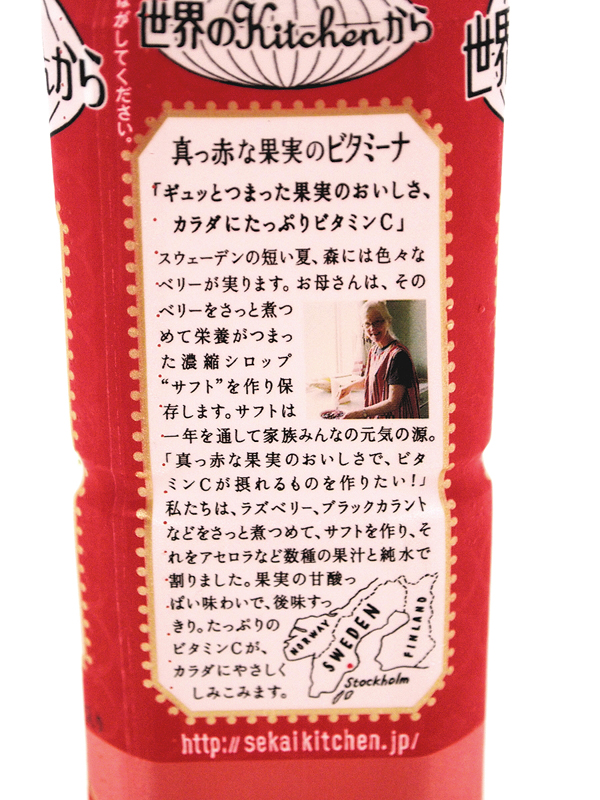 世界のKitchenから
から
世界
はがしてください。
真っ赤な果実のビタミーナ
「ギュッとつまった果実のおいしさ、
カラダにたっぷりビタミンC」
スウェーデンの短い夏、森には色々な
ベリーが実ります。お母さんは、その
ベリーをさっと煮つ
めて栄養がつまっ
た濃縮シロップ
“サフト”を作り保
存します。サフトは
一年を通して家族みんなの元気の源。
「真っ赤な果実のおいしさで、ビタ
ミンCが摂れるものを作りたい!」
私たちは、ラズベリー、ブラックカラント
などをさっと煮つめて、サフトを作り、そ
れをアセロラなど数種の果汁と純水で
割りました。果実の甘酸っ
ぱい味わいで、後味すっ
きり。たっぷりの
ビタミンCが、
カラダにやさしく
しみこみます。
NORWAY
SWEDEN
FINLAND
Stockholm
http://sekaikitchen.jp/